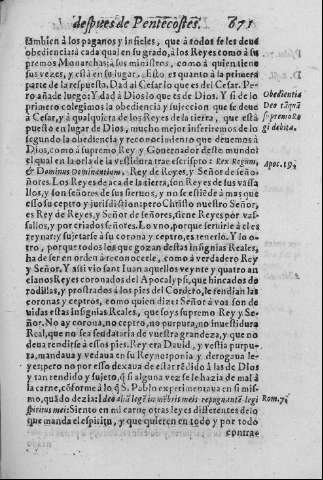 despues de Pentecostes. 671
tambien à los paganos y infieles, que à todos se les deue
obediencia à cada qual en su grado, à los Reyes como à su
premos Monarchas; à sus ministros, como à quien tiene
sus vezes, y està en su lugar. Esto es quanto à la primera
parte de la respuesta. Dad al Cesar lo que es del Cesar. Pe
ro añade luego: Y dad à Dios lo que es de Dios. Y si de lo
primero colegimos la obediencia y sujeccion que se deue
à Cesar, y à qualquiera de los Reyes de la tierra, que està
puesto en lugar de Dios, mucho mejor inferiremos de lo
segundo la obediencia y reconocimiento que deuemos à
Dios, como à supremo Rey y Gouernador deste mundo:
el qual en la orla de la vestidura trae escripto: Rex Regum,
& Dominus Dominantium, Rey de Reyes, y Señor de seño-
ñores. Los Reyes de acà de la tierra, son Reyes de sus vassa
llos, y son señores de sus sieruos, y no se estiēde à mas que
esso su ceptro y jurisdiction: pero Christo nuestro Señor,
es Rey de Reyes, y Señor de señores, tiene Reyes por vas-
sallos, y por criados señores. Lo vno, porque seruirle à el es
reynar: y sujetarse à su corona y ceptro, es tenerlo. Y lo o-
tro, porque todos los que gozan destas insignias Reales,
ha de ser en orden à reconocerle, como à verdadero Rey
y Señor. Y assi vio sant Iuan aquellos veynte y quatro an
cianos Reyes coronados del Apocalypsi, que hincados de
rodillas, y postrados à los pies del Cordero, le rendian las
coronas y ceptros, como quien dize: Señor à vos son de
uidas estas insignias Reales, que soys supremo Rey y Se-
ñor. No ay corona, no ceptro, no purpura, no inuestidura
Real, que no sea feudataria de vuestra grandeza, y que no
deua rendirse à essos pies. Rey era Dauid, y vestia purpu-
ra, mandaua y vedaua en su Reyno: ponia y derogaua le-
yes: pero no por esso dexaua de estar rēdido à las de Dios
y tan rendido y sujeto, q̃ si alguna vez se le hazia de mal à
la carne, cōforme à lo q̃ S. Pablo experimentaua en si mis-
mo, quādo dezia: Video aliā legē in mēbris meis repugnantē legi
spiritus mei: Siento en mi carne otras leyes differentes de lo
que manda el espiritu, y que quieren en todo y por todo
contra-
Obedientia
Deo tāquā
supremo Re
gi debita.
Apoc. 19.
Rom. 7.